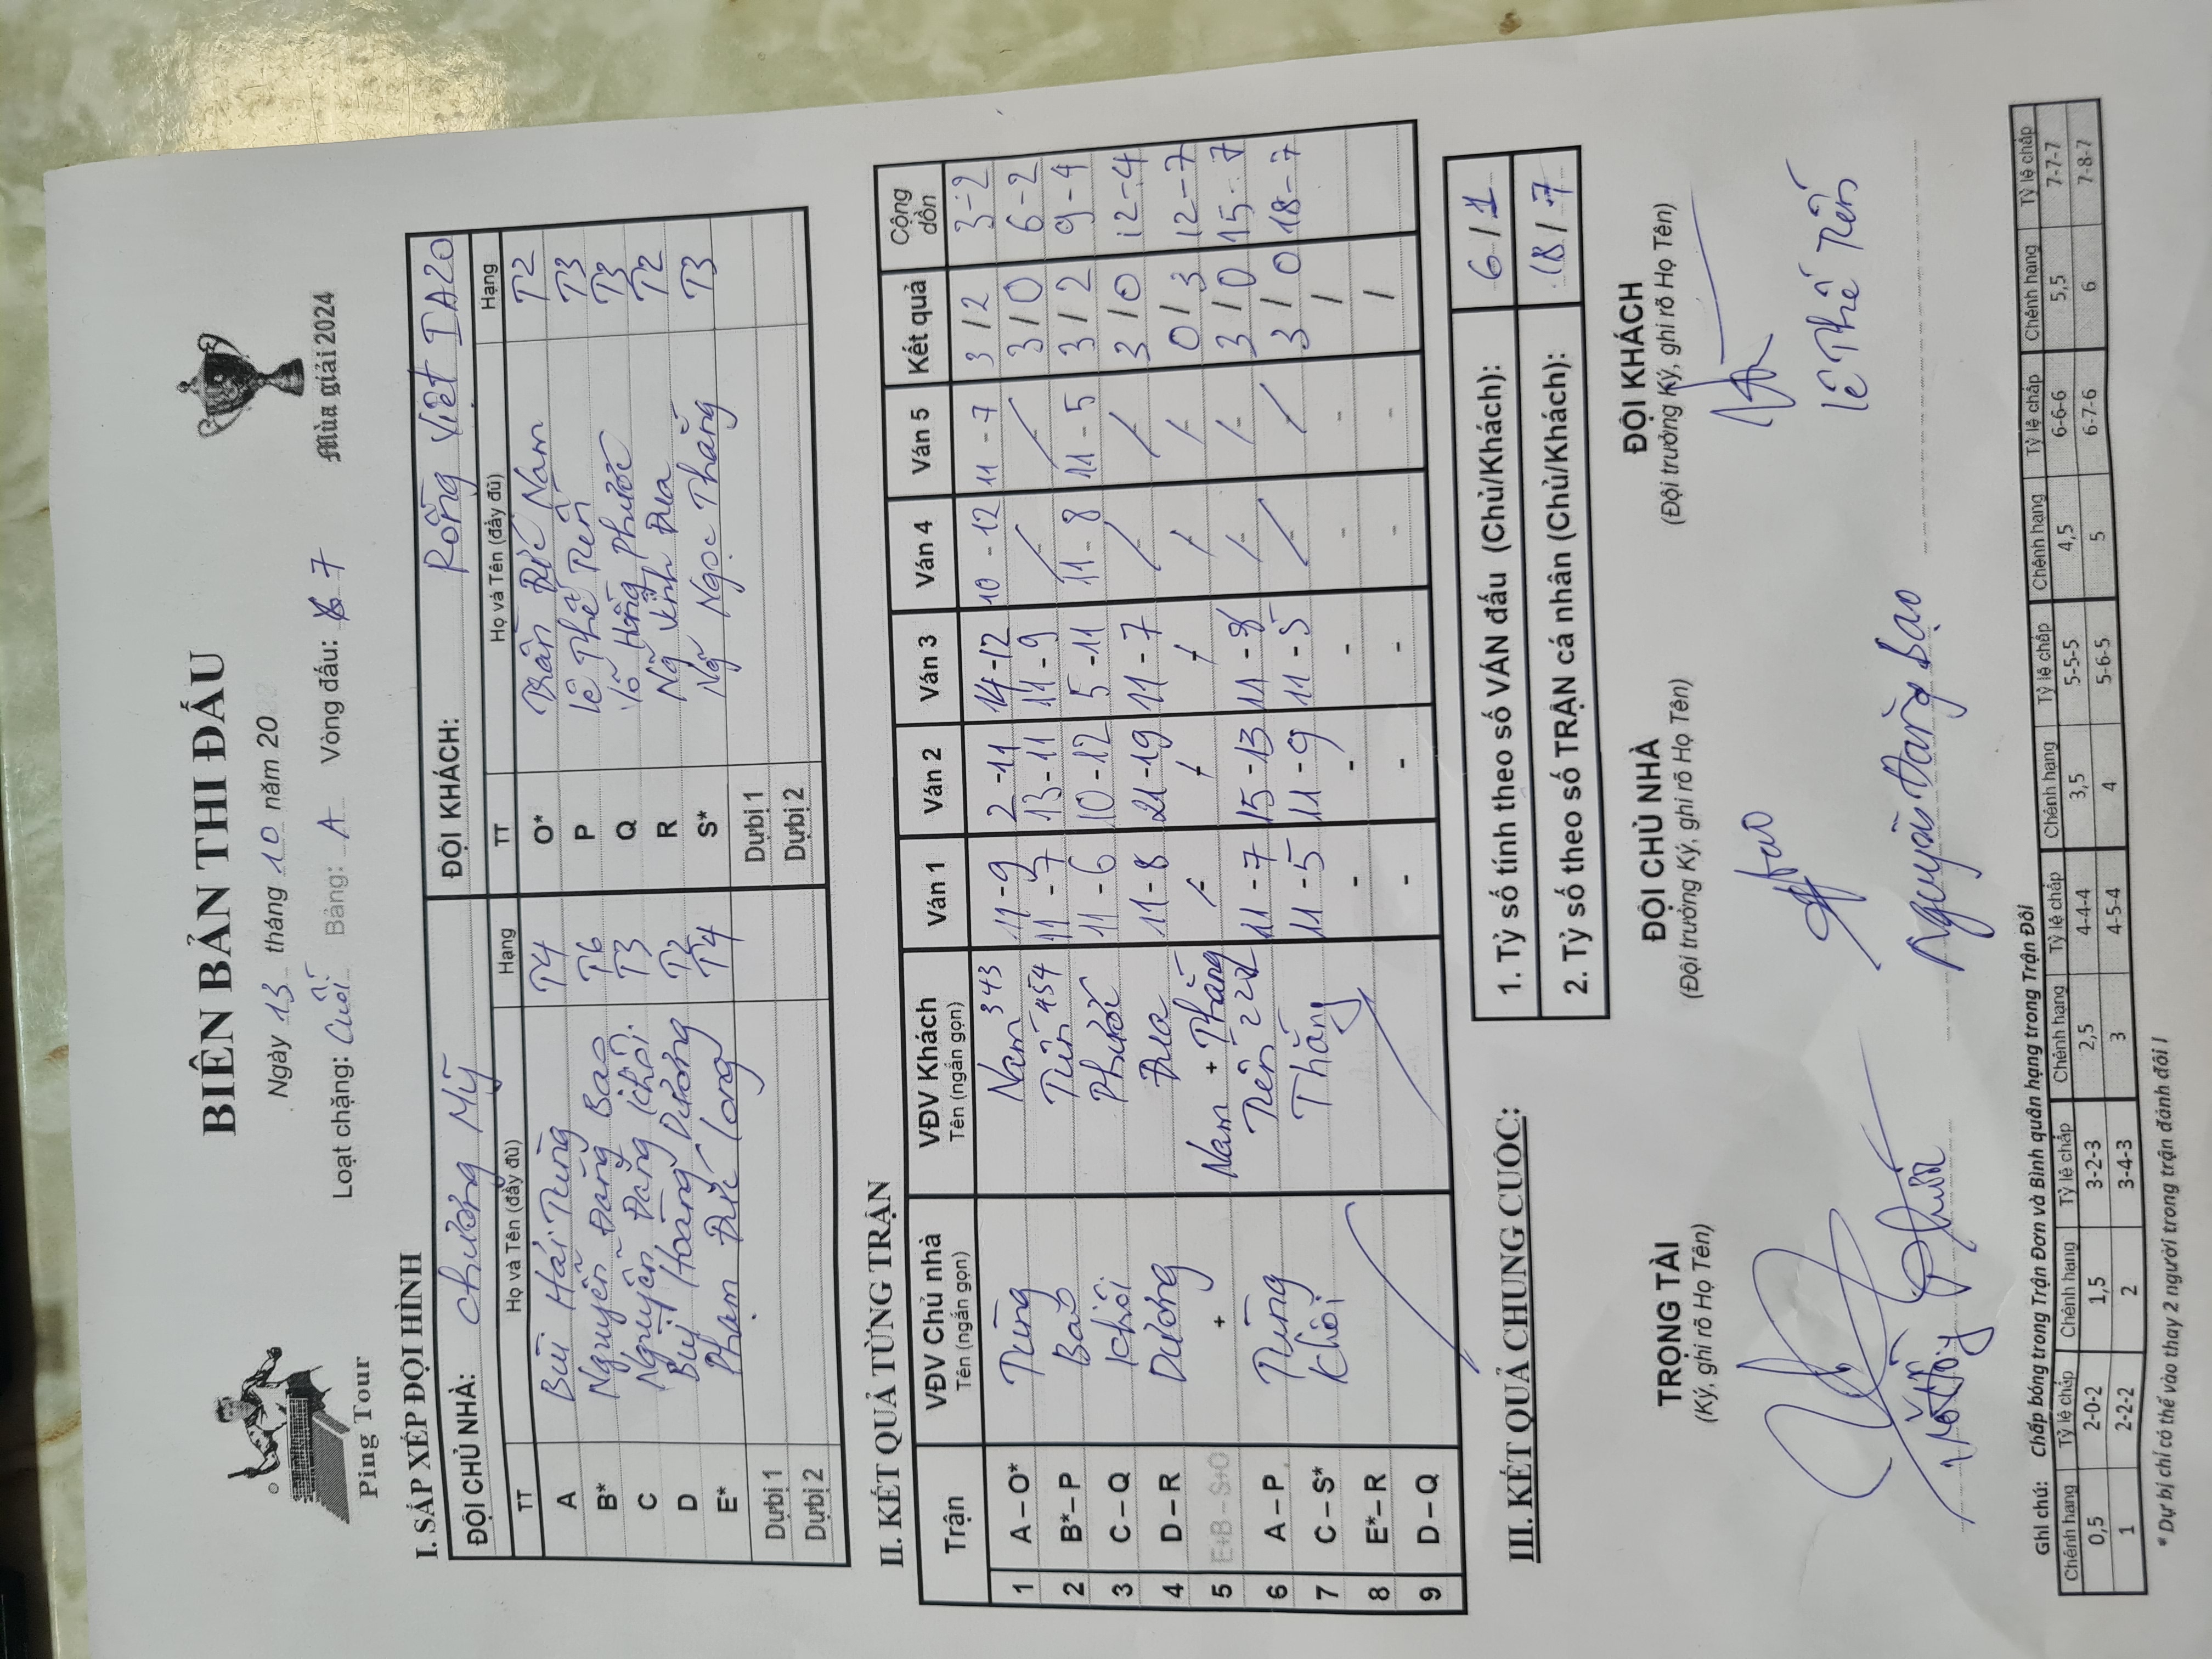 BIÊN BẢN THI ĐẤU
Ping Tour
Ngày 13 tháng 10 năm 20
Loạt chặng: Cuối Bảng: A Vòng đấu: 7
Mùa giải 2024
I. SẮP XẾP ĐỘI HÌNH
ĐỘI CHỦ NHÀ: Chương Mỹ ĐỘI KHÁCH: Rồng Việt IA20
TT Họ và Tên (đầy đủ) Hạng TT Họ và Tên (đầy đủ) Hạng
A Bùi Hải Tùng T4 O* Trần Đức Nam T2
B* Nguyễn Đăng Bảo T6 P Lê Thế Tiến T3
C Nguyễn Đăng Khôi T3 Q Võ Hồng Phước T3
D Bùi Hoàng Dương T2 R Ng Vĩnh Đua T2
E* Phạm Đức Long T4 S* Ng Ngọc Thắng T3
Dự bị 1 Dự bị 1
Dự bị 2 Dự bị 2
II. KẾT QUẢ TỪNG TRẬN
Trận VĐV Chủ nhà Tên (ngắn gọn) VĐV Khách Tên (ngắn gọn) Ván 1 Ván 2 Ván 3 Ván 4 Ván 5 Kết quả Cộng dồn
1 A – O* Tùng Nam 343 11 - 9 2 - 11 14 - 12 10 - 12 11 - 7 3 / 2 3 - 2
2 B* – P Bảo Tiến 454 11 - 7 13 - 11 11 - 9 - - 3 / 0 6 - 2
3 C – Q Khôi Phước 11 - 6 10 - 12 5 - 11 11 - 8 11 - 5 3 / 2 9 - 4
4 D – R Dương Đua 11 - 8 21 - 19 11 - 7 - - 3 / 0 12 - 4
5 E+B – S+O + Nam + Thắng - - - - - 0 / 3 12 - 7
6 A – P Tùng Tiến 11 - 7 15 - 13 11 - 8 - - 3 / 0 15 - 7
7 C – S* Khôi Thắng 11 - 5 11 - 9 11 - 5 - - 3 / 0 18 - 7
8 E* – R - - - - - /
9 D – Q - - - - - /
III. KẾT QUẢ CHUNG CUỘC:
1. Tỷ số tính theo số VÁN đấu (Chủ/Khách): 6 / 1
2. Tỷ số theo số TRẬN cá nhân (Chủ/Khách): 18 / 7
TRỌNG TÀI ĐỘI CHỦ NHÀ ĐỘI KHÁCH
(Ký, ghi rõ Họ Tên) (Đội trưởng Ký, ghi rõ Họ Tên) (Đội trưởng Ký, ghi rõ Họ Tên)
Nguyễn Đăng Bảo Lê Thế Tiến
Ghi chú: Chấp bóng trong Trận Đơn và Bình quân hạng trong Trận Đôi
Chênh hạng Tỷ lệ chấp Chênh hạng Tỷ lệ chấp Chênh hạng Tỷ lệ chấp Chênh hạng Tỷ lệ chấp Chênh hạng Tỷ lệ chấp Chênh hạng Tỷ lệ chấp
0,5 2-0-2 1,5 3-2-3 2,5 4-4-4 3,5 5-5-5 4,5 6-6-6 5,5 7-7-7
1 2-2-2 2 3-4-3 3 4-5-4 4 5-6-5 5 6-7-6 6 7-8-7
* Dự bị chỉ có thể vào thay 2 người trong trận đánh đôi !